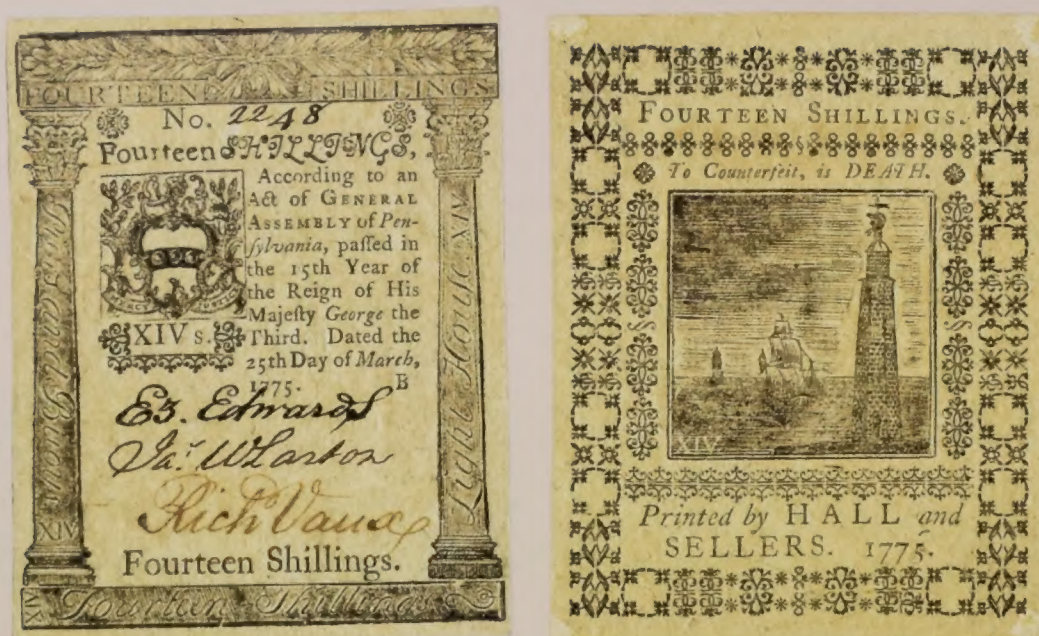 FOURTEEN SHILLINGS
No. 2248
Fourteen SHILLINGS,
According to an
Act of GENERAL
ASSEMBLY of Pen-
ſylvania, paſſed in
the 15th Year of
the Reign of His
Majeſty George the
Third. Dated the
25th Day of March,
1775. B
XIV s.
Ez. Edwards
Jaˢ. Wharton
Rich Vaux
Fourteen Shillings.
XIV
Light House. XIV
XIV Fourteen Shillings
FOURTEEN SHILLINGS.
To Counterfeit, is DEATH.
XIV
Printed by HALL and
SELLERS. 1775.